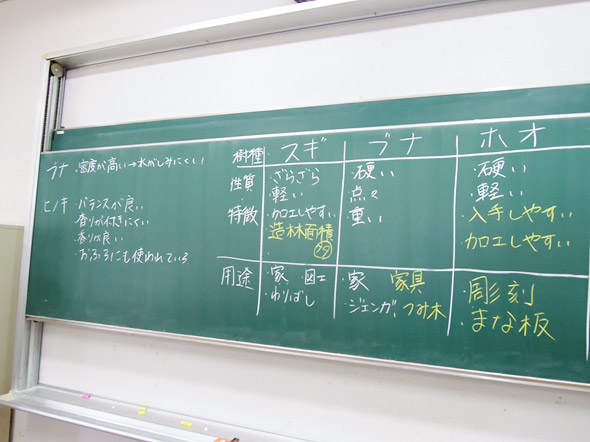 ブナ 密度が高い→水がしみにくい
ヒノキ ・バランスが良い
香りが付きにくい
香りが良い
・おふろにも使われている
樹種 スギ ブナ ホオ
性質 ・ざらざら ・硬い ・硬い
・軽い 点々 ・軽い
特徴 ・加工しやすい ・重い ・入手しやすい
造林面積 ・加工しやすい
用途 ・家 図工 ・家 家具 ・彫刻
・わりばし ・ジェンガ、つみ木 ・まな板